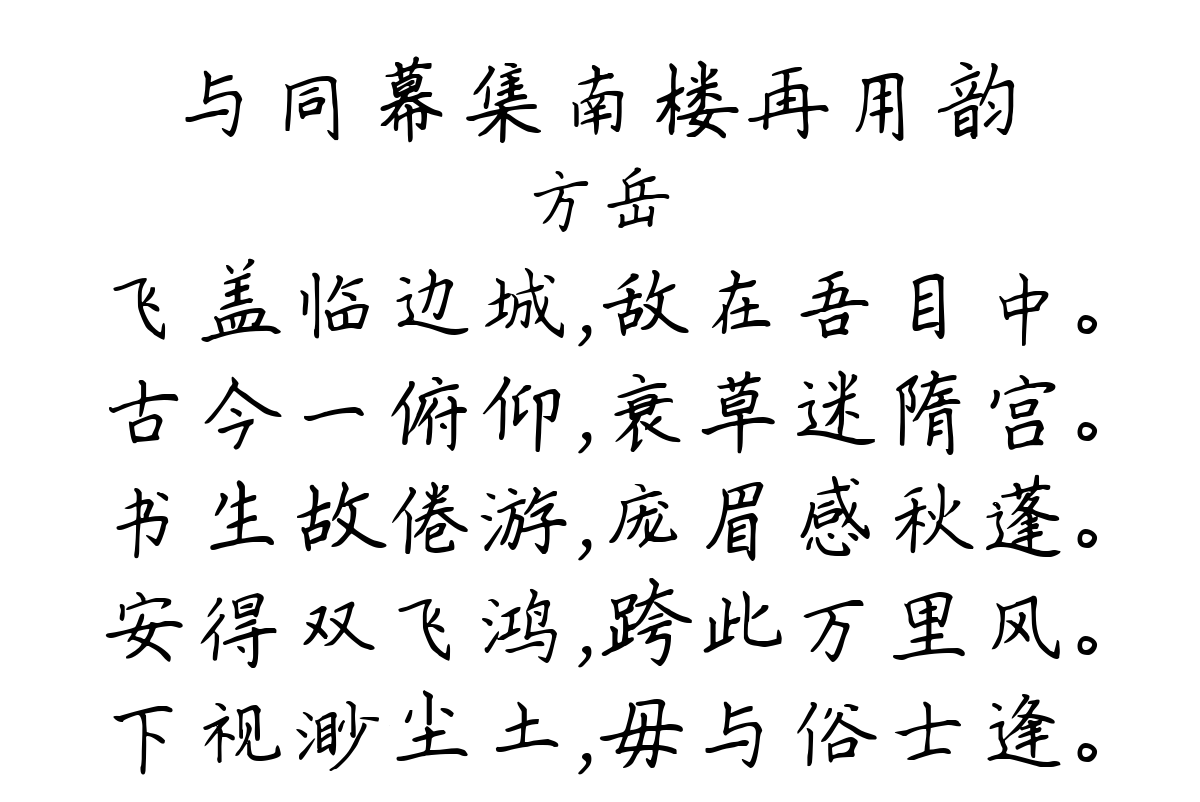 与同幕集南楼再用韵
方岳
飞盖临边城,敌在吾目中。
古今一俯仰,衰草迷隋宫。
书生故倦游,庞眉感秋蓬。
安得双飞鸿,跨此万里风。
下视渺尘土,毋与俗士逢。